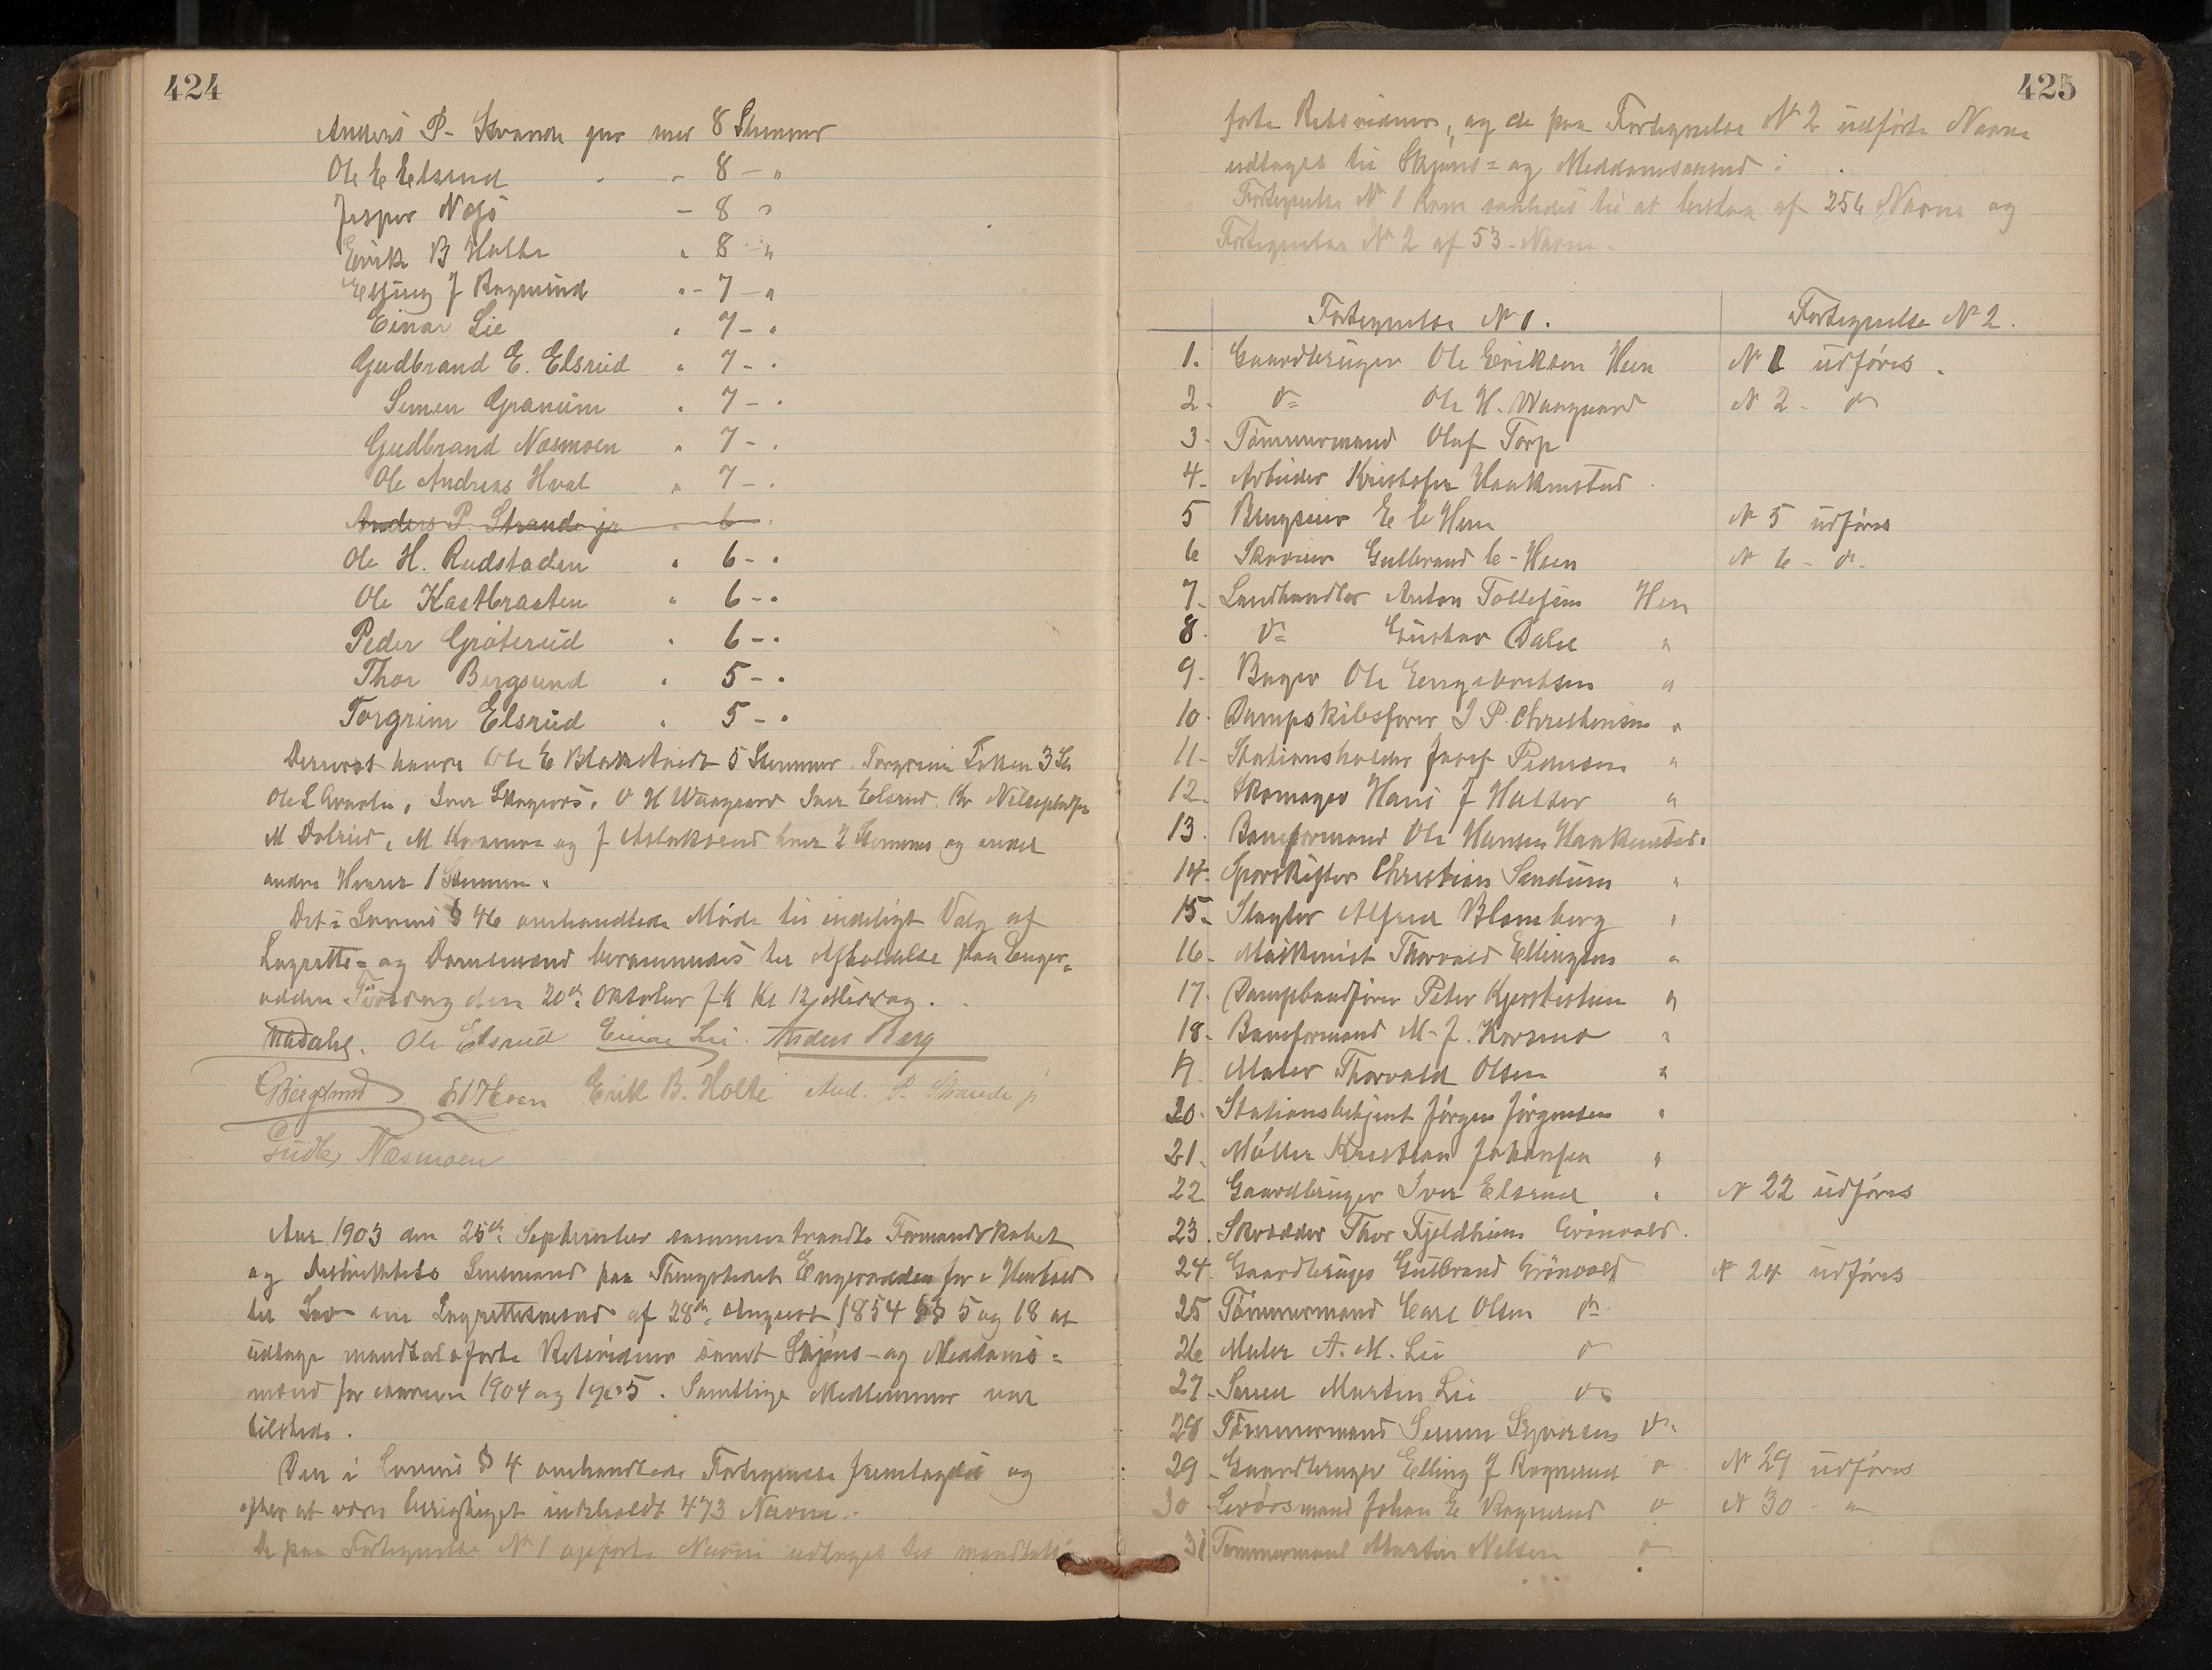 424
Anders P. Strande jnr med 8 Stemmer
Ole E Elsrud - 8 - "
Jesper Næs - 8 "
Erik B Holte " 8 - "
Elling J Rognerud " - 7 - "
Einar Lie " 7 - "
Gudbrand E. Elsrud " 7 - "
Simen Granum " 7 - "
Gudbrand Næsmoen " 7 - "
Ole Andreas Hval " 7 - "
Anders P. Strande jr " 6 "
Ole H. Rudstaden " 6 - "
Ole Kastbraaten " 6 - "
Peder Gröterud " 6 - "
Thor Bergsund " 5 - "
Torgrim Elsrud " 5 - "
Desuden havde Ole E Blakstvedt 5 Stemmer Torgrim 3 St
Ole L O H Waagaard Iver Elsrud Kr
M Dalerud, M Korsmo og J hver 2 Stemmer og endel
andre Hverer 1 Stemme.
Det i Lovens § 46 omhandlede Møde til endeligt Valg af
Lagrette= og Domsmænd berammedes til Afholdelse paa Enger=
odden Torsdag den 20de Oktober f k Kl 12 Middag.
Ole Elsrud Einar Lie. Anders Berg
GBergsund E O Hoen Erik B. Holte And. P. Strande jr
Gudbr. Næsmoen
Aar 1903 den 25de September sammentraadte Formandskabet
og Distriktets Lensmand paa Thingstedet Engerodden for i Henhold
til Lov om Lagrettesmænd af 28de August 1854 §§ 5 og 18 at
udtage mandtalsførte Retsvidner samt Skjøns- og Meddoms=
mænd for aarene 1904 og 1905. Samtlige Medlemmer var
tilstede.
Den i Lovens § 4 omhandlede Fortegnelse fremlagdes og
efter at være berigtiget indeholdt 473 Navne.
De paa Fortegnelse N 1 opførte Navne udtages til mandtals
425
førte Retsvidner, og de paa Fortegnelse N 2 udførte Navne
udtages til Skjøns= og Meddomsmænd.
Fortegnelse N 1 kom saaledes til at bestaa af 254 Navne og
Fortegnelse N 2 af 53 Navne.
Fortegnelse N 1. Fortegnelse N 2.
1. Gaardbruger Ole Eriksen Heen N 1 udføres.
2. do Ole H. Waagaard N 2 - do
3. Tømmermand Olaf Torp
4. Arbeider Kristofer Haakenstad
5 E O Heen N 5 udføres
6 Gulbrand O - Heen N 6 - do
7. Landhandler Anton Tollefsen Hen
8. do Gustav Dahl "
9. Bager Ole Engebretsen "
10. Dampskibsfører J P. Christensen "
11. Stationsholder Josef Pedersen "
12. Skomager Hans J Halter "
13. Baneformand Ole Hansen Haakenstad "
14. Sporskifter Christian Sundum "
15. Slagter Alfred Blomberg "
16. Maskinist Thorvald Ellingsen "
17. Dampbaadfører Peter Kjerstesten "
18. Baneformand M. J. Korsmo "
19. Maler Thorvald Olsen "
20. Stationsbetjent Jörgen Jörgensen "
21. Möller Kristian Johansen "
22 Gaardbruger Iver Elsrud " N 22 udføres
23. Skrædder Thor Fjeldheim Grönvold.
24. Gaardbruger Gulbrand Grönvold N 24 udføres
25 Tømmermand Carl Olsen do
26 Maler A. M. Lie do
27. Martin Lie do
28 Tømmermand Simen Syversen do
29. Gaardbruger Elling J Rognerud do N 29 udføres
30 Johan E Rognerud do N 30 - do
31 Tømmermand Martin Nilsen do